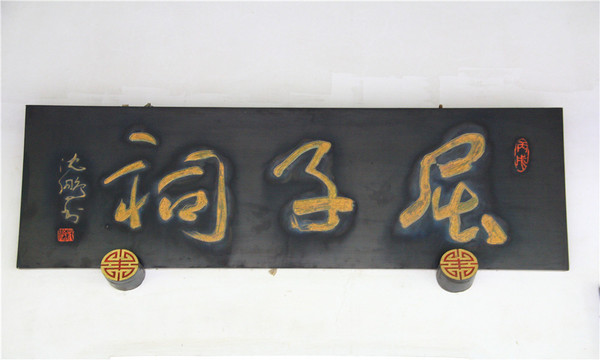 屈子祠
沈鹏书